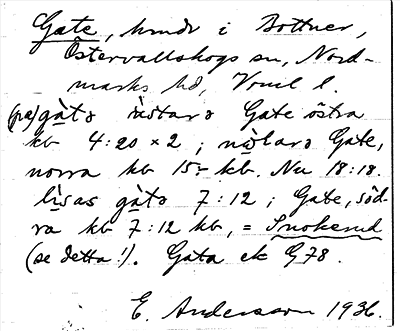 Gate, hmdr i Bottner,
Östervallskogs sn, Nord-
marks hd, Vrml l.
(pa) gàtə ùstarə Gate östra
kb 4:20 × 2; nòlarə Gate,
norra kb 15- kb. Nu 18:18.
lìsas gàtə 7:12; Gate, söd-
ra kb 7:12 kb, = Snokerud
(se detta!). Gata ek G 78.
E. Andersson 1936.